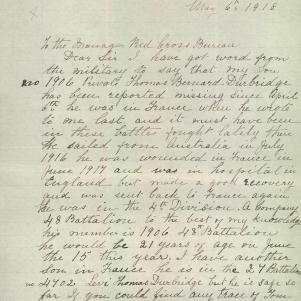 May 6th 1918
To the Manager Red Cross Bureau
Dear Sir I have got word from
the military to say that my Son
No 1906 Private Thomas Bernard Durbridge
has been reported missing since April
5th he was in France when he wrote
to me last and it must have been
in these Battles fought lately there
He sailed from Australia in July
1916 he was wounded in France in
June 1917 and was in hospital in
England but made a good recovery
and was sent back to France again
he was in the 4th Division A Company
48 Battalion to the best of my knowledge
his number is 1906 48 Battalion
he would be 21 years of age on June
the 15 this year. I have another
Son in France he is in the 27 Battalion
no 4702 Levi Thomas Durbridge but he is safe so
far If you could find any trace of Tom